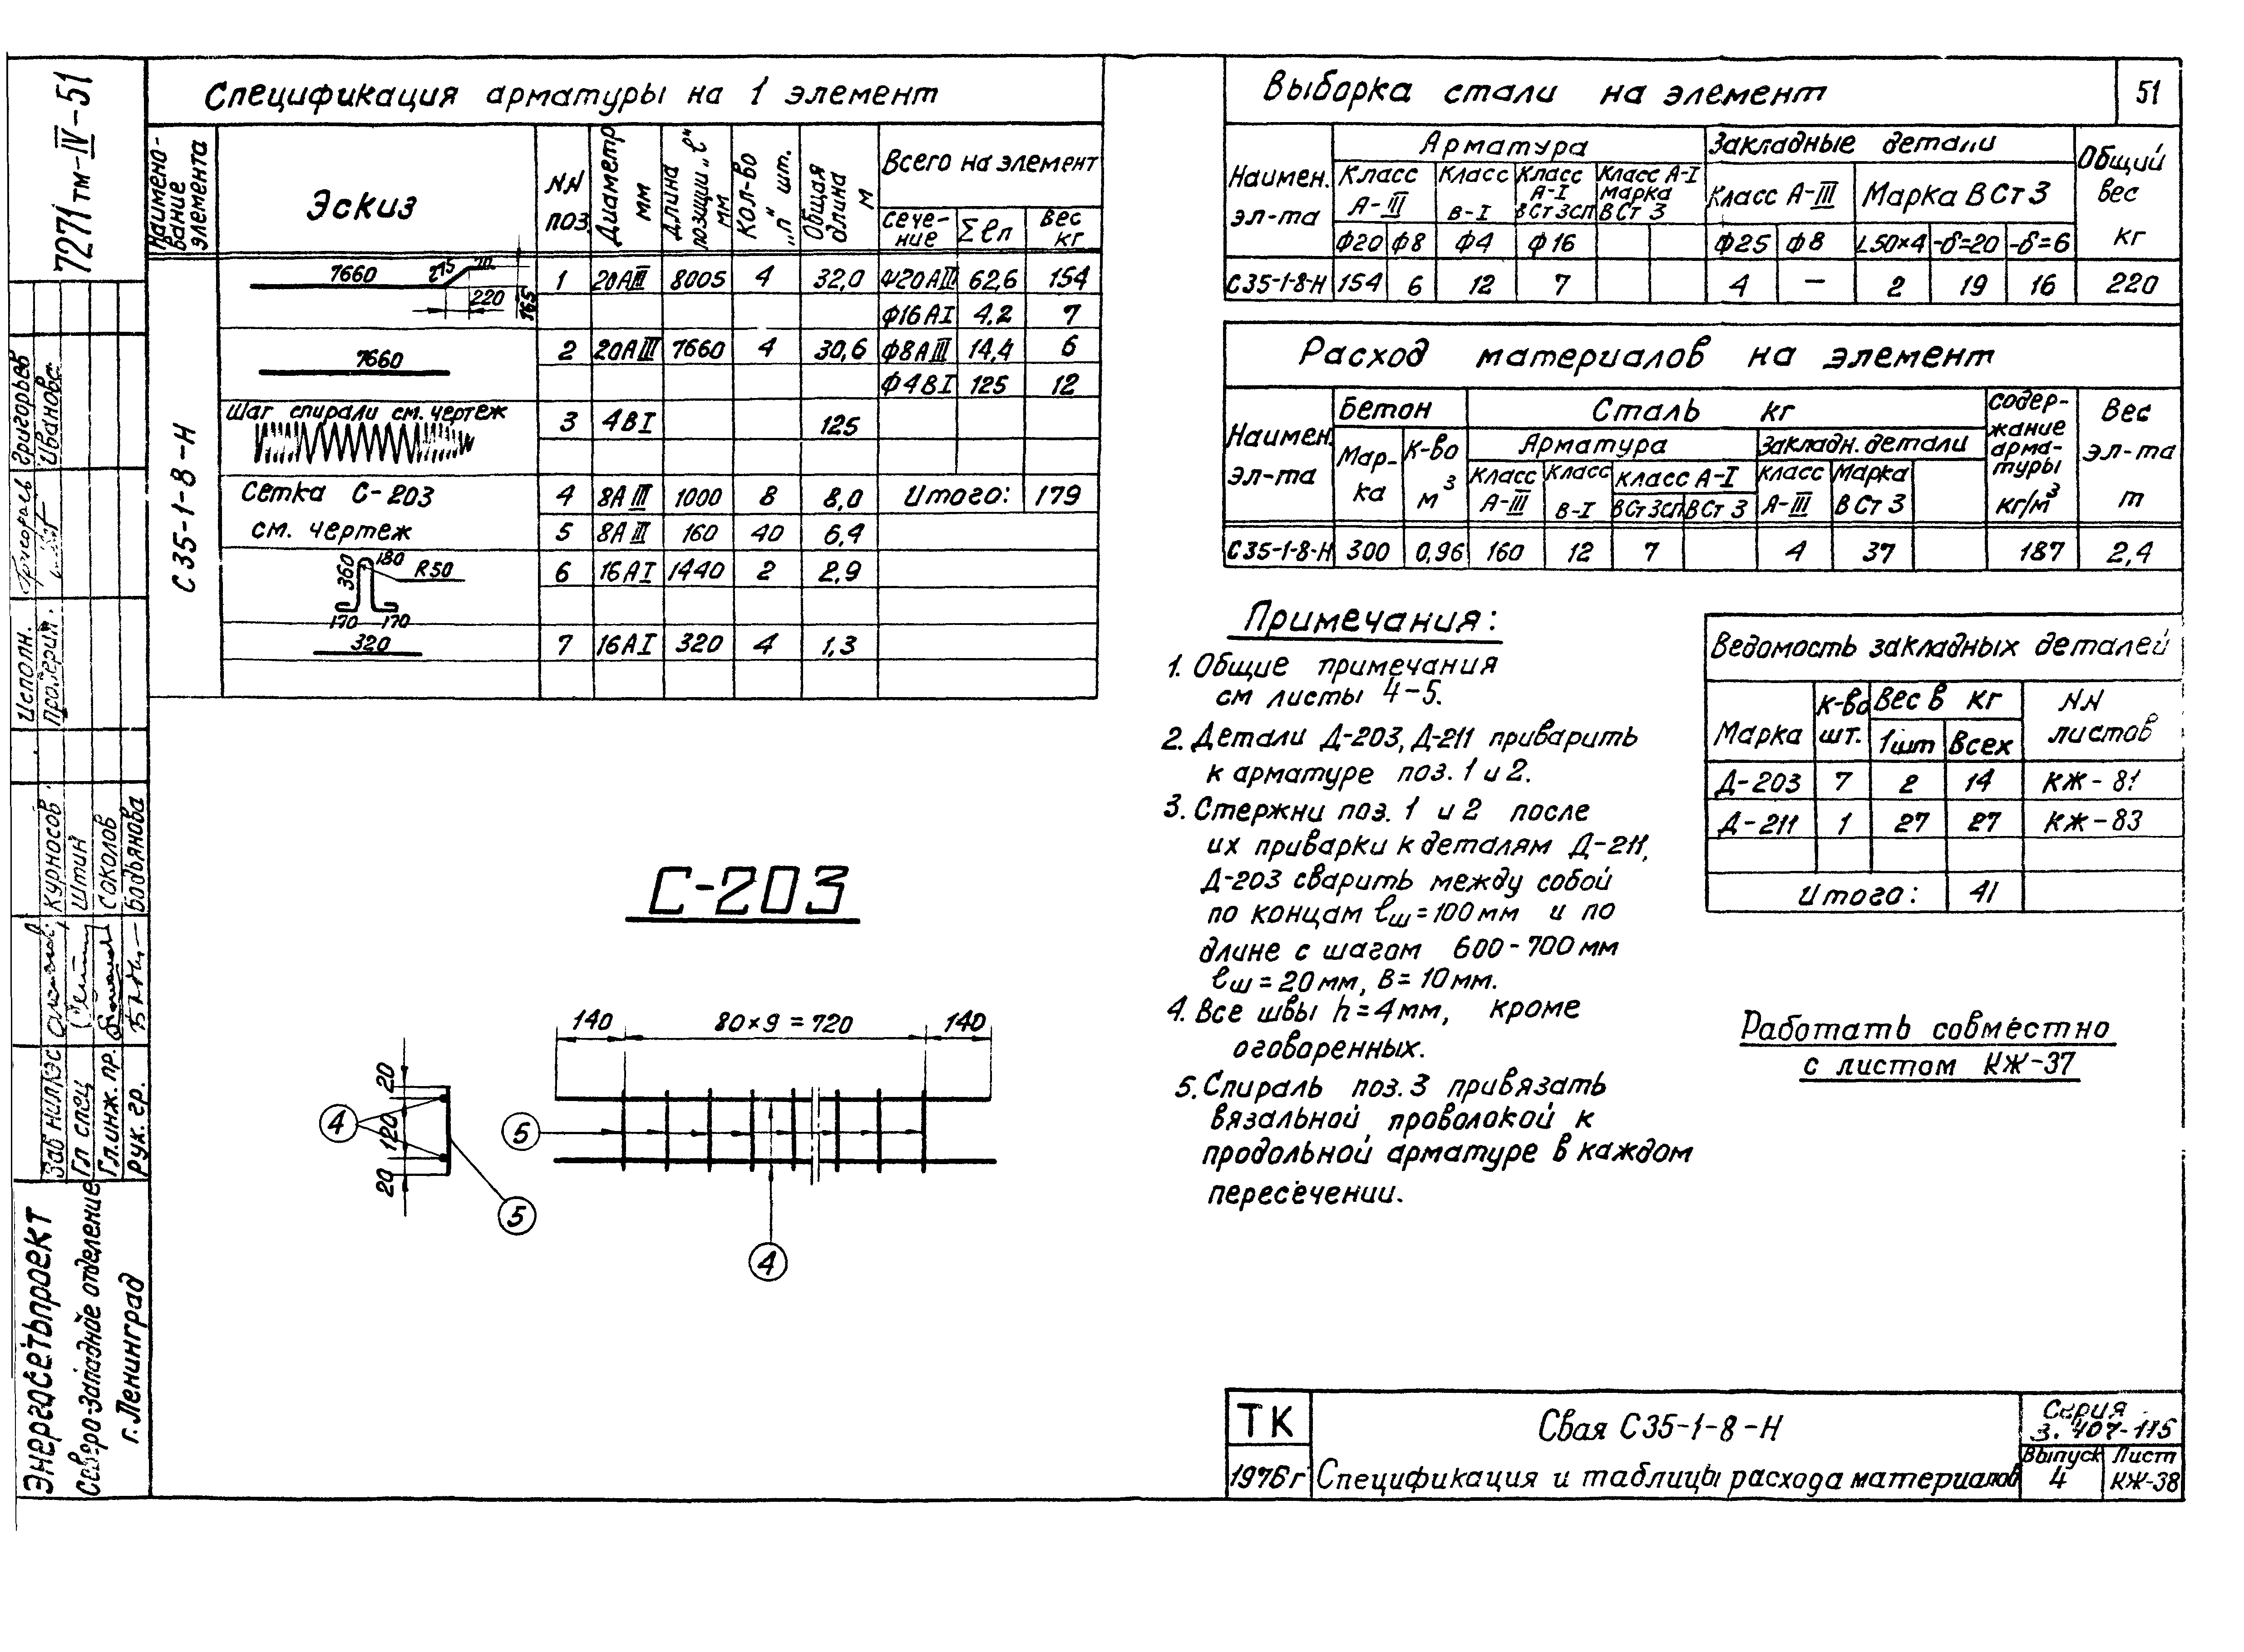 7271тм-IV-51
Спецификация арматуры на 1 элемент
Наименование элемента | Эскиз | NN поз | Диаметр мм | Длина позиции „ℓ“ мм | Кол-во „n“ шт. | Общая длина м | Всего на элемент
сечение | Σℓn | вес кг
С35-1-8-Н
7660 275 70 220 165 | 1 | 20АIII | 8005 | 4 | 32,0 | Ф20АIII | 62,6 | 154
Ф16АI | 4,2 | 7
7660 | 2 | 20АIII | 7660 | 4 | 30,6 | Ф8АIII | 14,4 | 6
Ф4ВI | 125 | 12
Шаг спирали см. чертеж | 3 | 4ВI | 125
Сетка С-203 | 4 | 8АIII | 1000 | 8 | 8,0 | Итого: | 179
см. чертеж | 5 | 8АIII | 160 | 40 | 6,4
360 180 R50 170 170 | 6 | 16АI | 1440 | 2 | 2,9
320 | 7 | 16АI | 320 | 4 | 1,3
С-203
140 80×9=720 140
20 120 20
4 5
5 4
Выборка стали на элемент
51
Наимен. эл-та | Арматура | Закладные детали | Общий вес кг
Класс А-III | Класс В-I | Класс А-I ВСт3сп | Класс А-I марка ВСт3 | Класс А-III | Марка ВСт3
Ф20 | Ф8 | Ф4 | Ф16 | Ф25 | Ф8 | L50×4 | -δ=20 | -δ=6
С35-1-8-Н | 154 | 6 | 12 | 7 | 4 | — | 2 | 19 | 16 | 220
Расход материалов на элемент
Наимен. эл-та | Бетон | Сталь кг | Содержание арматуры кг/м³ | Вес эл-та т
Марка | К-во м³ | Арматура | Закладн. детали
класс А-III | класс В-I | класс А-I | класс А-III | Марка ВСт3
ВСт3сп | ВСт3
С35-1-8-Н | 300 | 0,96 | 160 | 12 | 7 | 4 | 37 | 187 | 2,4
Примечания:
1. Общие примечания
см листы 4-5.
2. Детали Д-203, Д-211 приварить
к арматуре поз. 1 и 2.
3. Стержни поз. 1 и 2 после
их приварки к деталям Д-211,
Д-203 сварить между собой
по концам ℓш=100мм и по
длине с шагом 600-700мм
ℓш=20мм, В=10мм.
4. Все швы h=4мм, кроме
оговоренных.
5. Спираль поз. 3 привязать
вязальной проволокой к
продольной арматуре в каждом
пересечении.
Ведомость закладных деталей
Марка | К-во шт. | Вес в кг | NN листов
1шт | Всех
Д-203 | 7 | 2 | 14 | КЖ-81
Д-211 | 1 | 27 | 27 | КЖ-83
Итого: | 41
Работать совместно
с листом КЖ-37
ТК
1976г
Свая С35-1-8-Н
Спецификация и таблицы расхода материалов
Серия
3.407-115
Выпуск
4
Лист
КЖ-38
Исполн. Григорьев
Иванова
Зав НИЛКЭС Курносов
Гл спец Штин
Гл.инж.пр. Соколов
Рук. гр.
Энергосетьпроект
Северо-Западное отделение
г. Ленинград